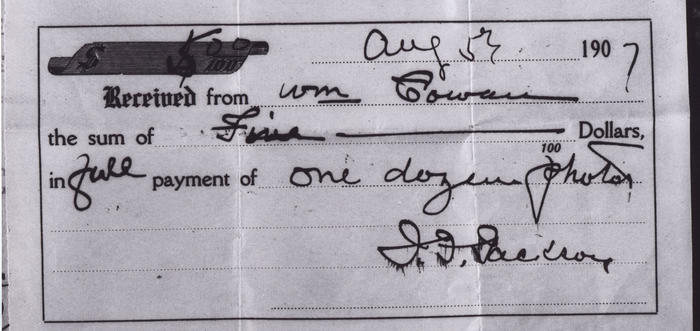 $5 00/100 Aug 5th 1907
Received from Wm Cowan
the sum of Five Dollars,
100
in full payment of one dozen photos
J. F. Jackson